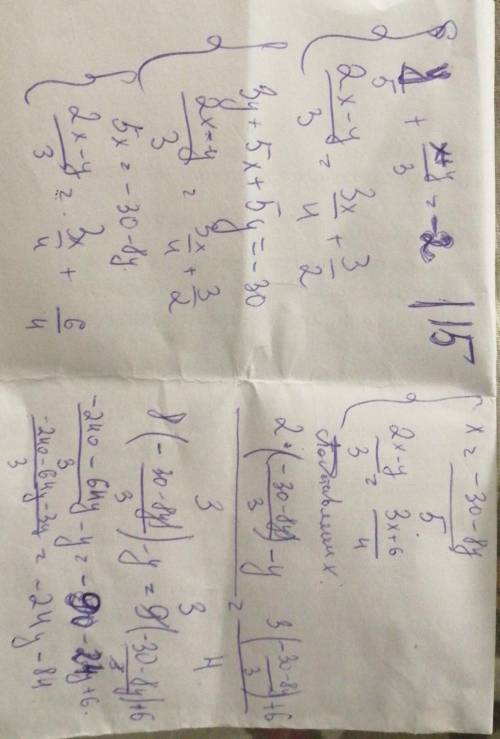 y/5 + (x+y)/3 = -2 | 15
(2x-y)/3 = 3x/4 + 3/2
3y + 5x + 5y = -30
(2x-y)/3 = 3x/4 + 3/2
5x = -30-8y
(2x-y)/3 = 3x/4 + 6/4
x = (-30-8y)/5
(2x-y)/3 = (3x+6)/4
Подставляем x:
(2·((-30-8y)/3) - y)/3 = (3((-30-8y)/3)+6)/4
8((-30-8y)/3) - y = 9((-30-8y)/3)+6
(-240-64y)/3 - y = -90-24y+6
(-240-64y-3y)/3 = -24y-84